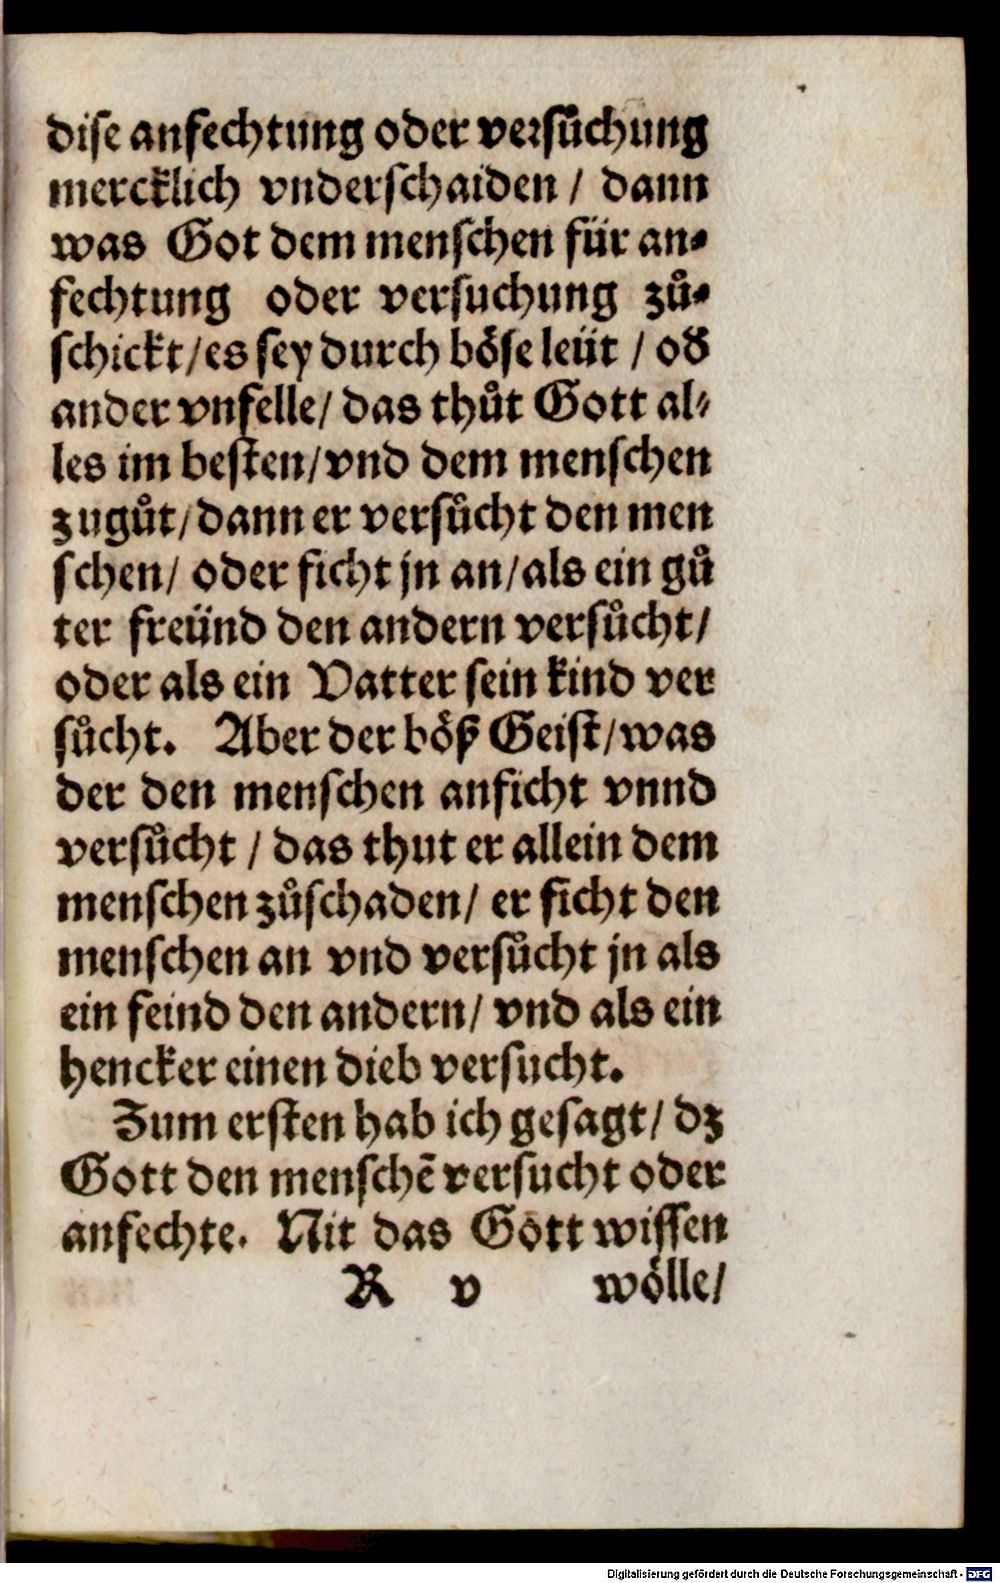 dise anfechtung oder versůchung
mercklich vnderschaiden / dann
was Got dem menschen für an⸗
fechtung oder versuchung zů⸗
schickt / es sey durch böse leüt / od̕
ander vnfelle / das thůt Gott al⸗
les im besten / vnd dem menschen
zugůt / dann er versůcht den men
schen / oder ficht jn an / als ein gů
ter freünd den andern versůcht /
oder als ein Vatter sein kind ver
sůcht. Aber der böß Geist / was
der den menschen anficht vnnd
versůcht / das thut er allein dem
menschen zůschaden / er ficht den
menschen an vnd versůcht jn als
ein feind den andern / vnd als ein
hencker einen dieb versucht.
Zum ersten hab ich gesagt / dz
Gott den menschē versucht oder
anfechte. Nit das Gott wissen
R v wölle /
Digitalisierung gefördert durch die Deutsche Forschungsgemeinschaft - DFG